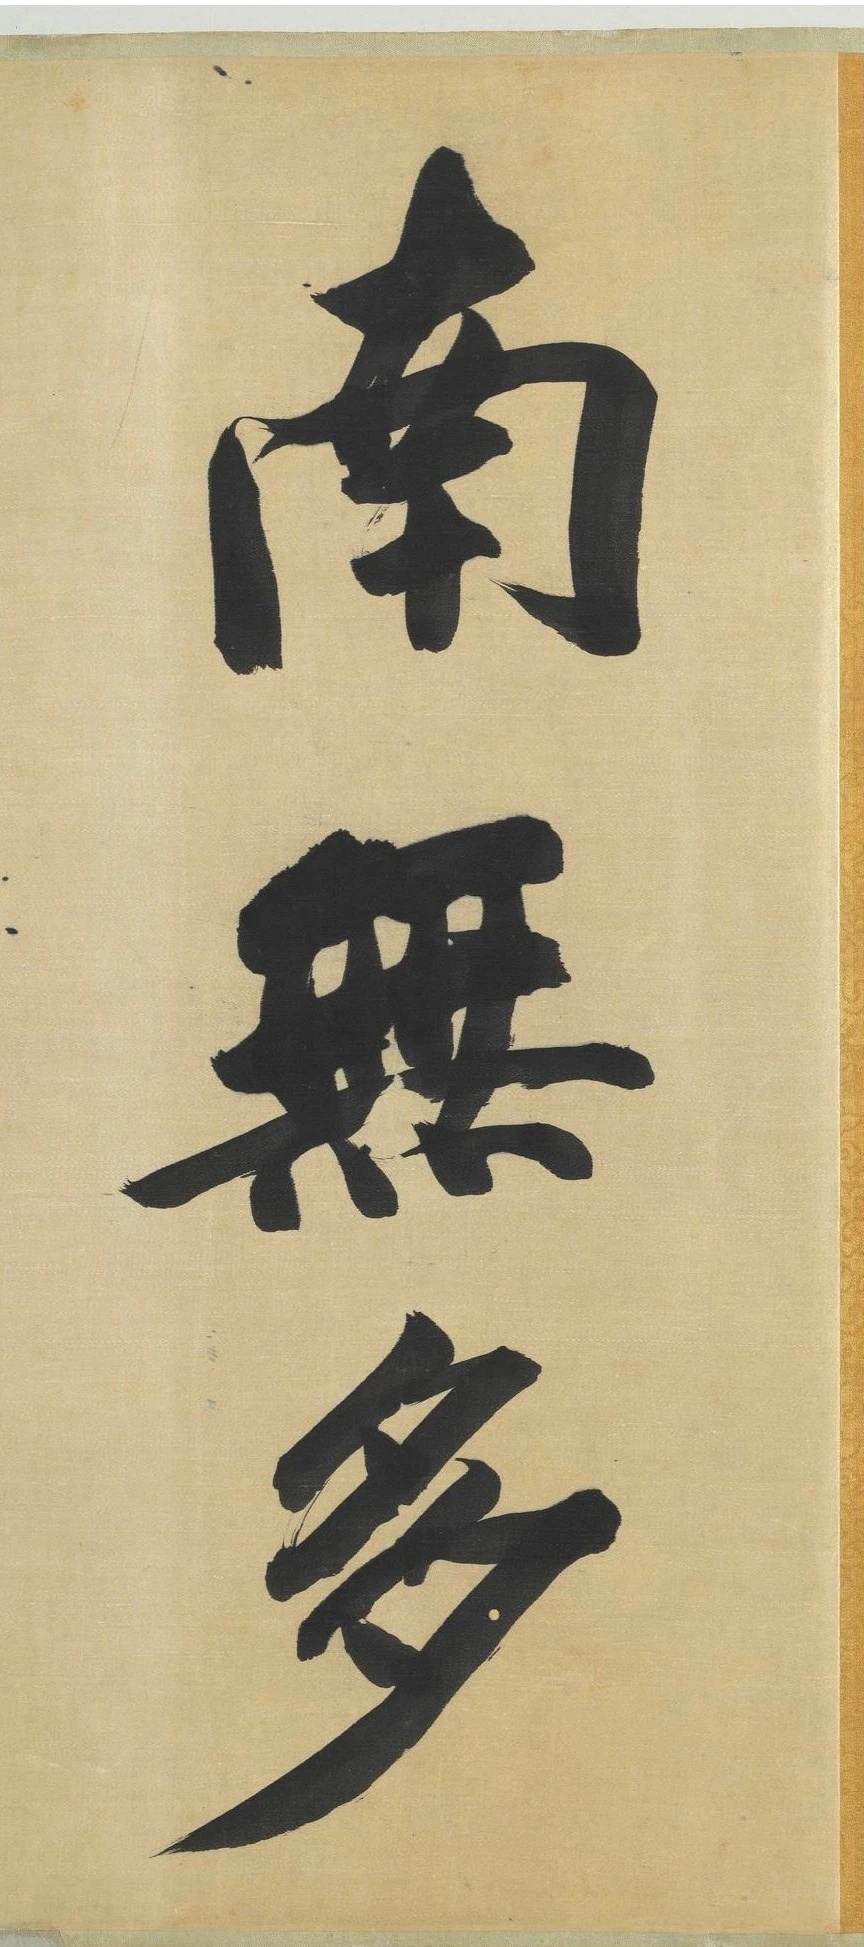 南無多